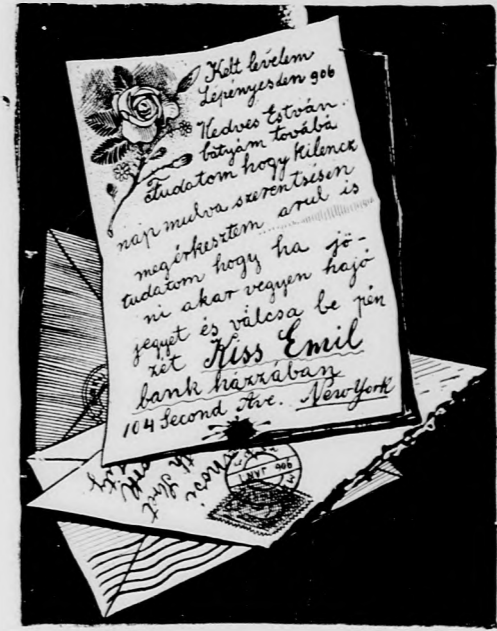 Kelt levelem
Lépényesden 906
Kedves Estván.
bátyám továbá
tudatom hogy kilencz
nap mulva szerentsésen
megérkesztem arul is
tudatom hogy ha jö-
ni akar vegyen hajó
jegyet és válcsa be pén
zét Kiss Emil
bank házzában
104 Second Ave. New York
906